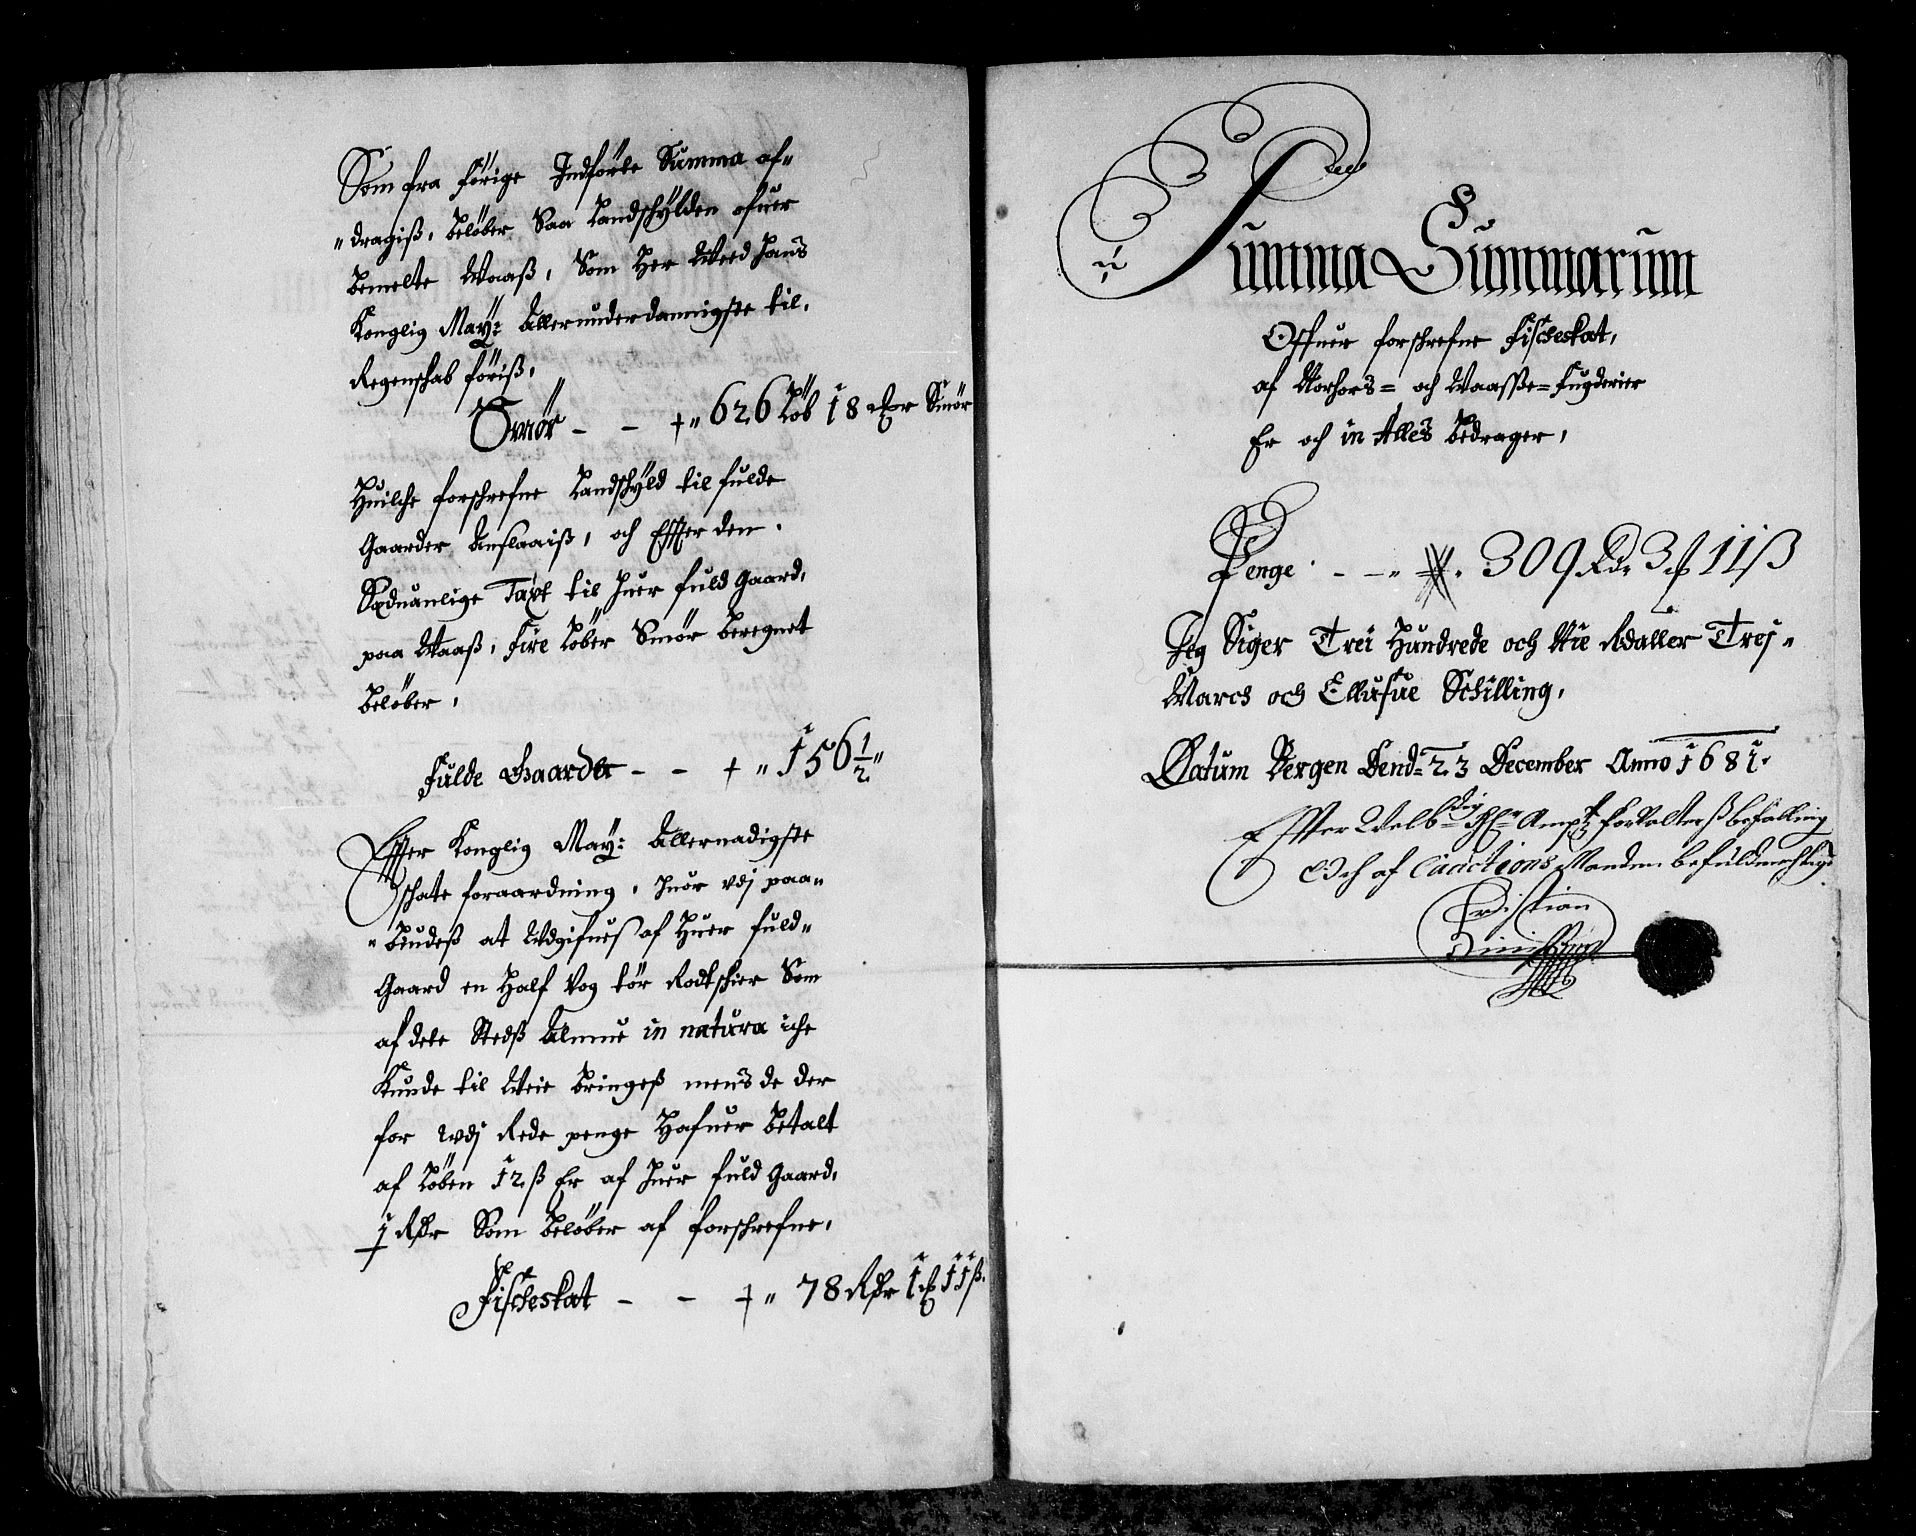 Som fra forige Indførte Summa af„
„dragiß, beløber Saa Landschÿlden ofuer
bemelte Waaß, Som her Weed Hans
Konglig Maÿ: Allerunderdannigste til
Regenschab føriß,
Smør – – +„ 626 Løb 18 mrr Smør
Huilche forschrefne Landschÿld til fulde
Gaarder Anslaaiß, och Effter den
Sæduanlige Taxt til huer fuld Gaard,
paa Waaß, fire Løber Smør beregnet
beløber,
Fulde Gaarder – – + „ 156 1/2 „
Effter Konglig Maÿ: Allernadigste
schate foraardning, huor udj paa„
„biudeß at Udgifues af huer fuld„
Gaard en half Vog tør Rodtschier Som
af dete Stedß Almue in natura iche
Kunde til Weie bringeß mens de der
for udj Rede penge Hafuer betalt
af Løben 12 ß Er af huer fuld Gaard,
Rdr Som beløber af forschrefne,
Fischeskat – – + „ 78 Rdr 1 mk 11 ß.
Summa Summarum
Offuer forschrefne Fischeskat,
af Norhors= och Waasße= fugderier
Er och in Alles bedrager,
Penge – – 309 Rdr 3 mk 11 ß
Jeg Siger Trei Hundrede och Nie Rdaller Trej„
March och Ellufue Schilling,
Datum Bergen Dend: 23 December Anno 1681.
Effter Welbdig Hr Amptforvalterß befalling
Och af Cauctions Manden befuldmechtiget
Christian